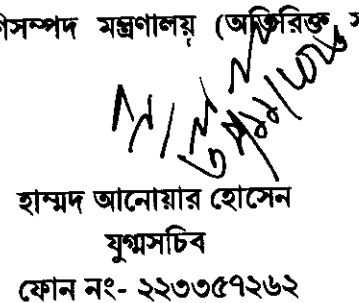 ণিসম্পদ মন্ত্রণালয় (অতিরিক্ত
হাম্মদ আনোয়ার হোসেন
যুগ্মসচিব
ফোন নং- ২২৩৩৫৭২৬২